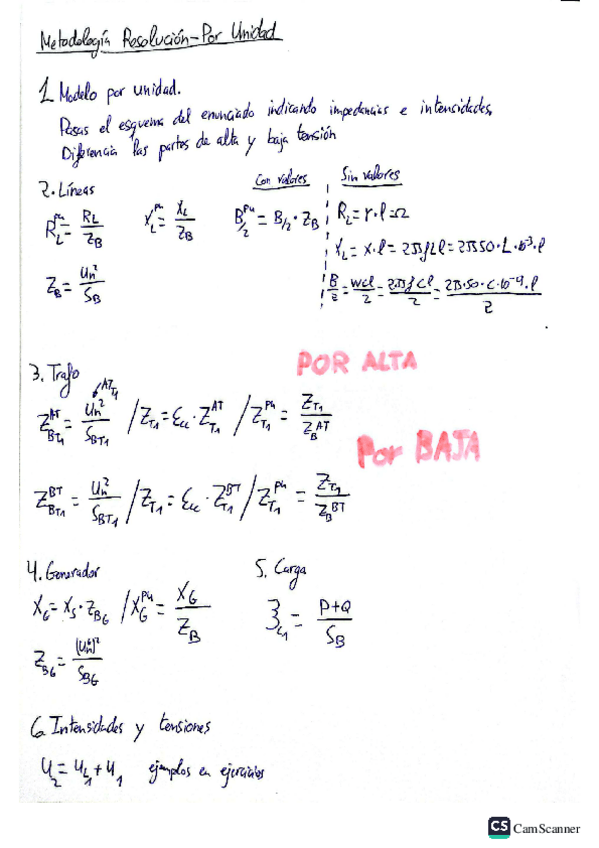 Metodología Resolución - Por Unidad
1. Modelo por unidad.
Pasas el esquema del enunciado indicando impedancias e intensidades,
Diferencia las partes de alta y baja tensión
2. Líneas
Con valores
Sin valores
R_L^pu = R_L / Z_B
X_L^pu = X_L / Z_B
B/2^pu = B/2 · Z_B
R_L = r · l = Ω
X_L = x · l = 2πfLl = 2π50 · L · 10^-3 · l
Z_B = U_n^2 / S_B
B/2 = wCl / 2 = 2πfCl / 2 = 2π · 50 · C · 10^-9 · l / 2
POR ALTA
3. Trafo
Z_BT1^AT = U_n^2 ATT1 / S_BT1 / Z_T1 = Ecc · Z_T1^AT / Z_T1^pu = Z_T1 / Z_B^AT
Por BAJA
Z_BT1^BT = U_n^2 / S_BT1 / Z_T1 = Ecc · Z_T1^BT / Z_T1^pu = Z_T1 / Z_B^BT
4. Generador
5. Carga
X_G = X_s · Z_BG / X_G^pu = X_G / Z_B
= P+Q / S_B
Z_BG = (U_n^G)^2 / S_BG
6. Intensidades y tensiones
U_2 = U_L1 + U_1 ejemplos en ejercicios
CS CamScanner